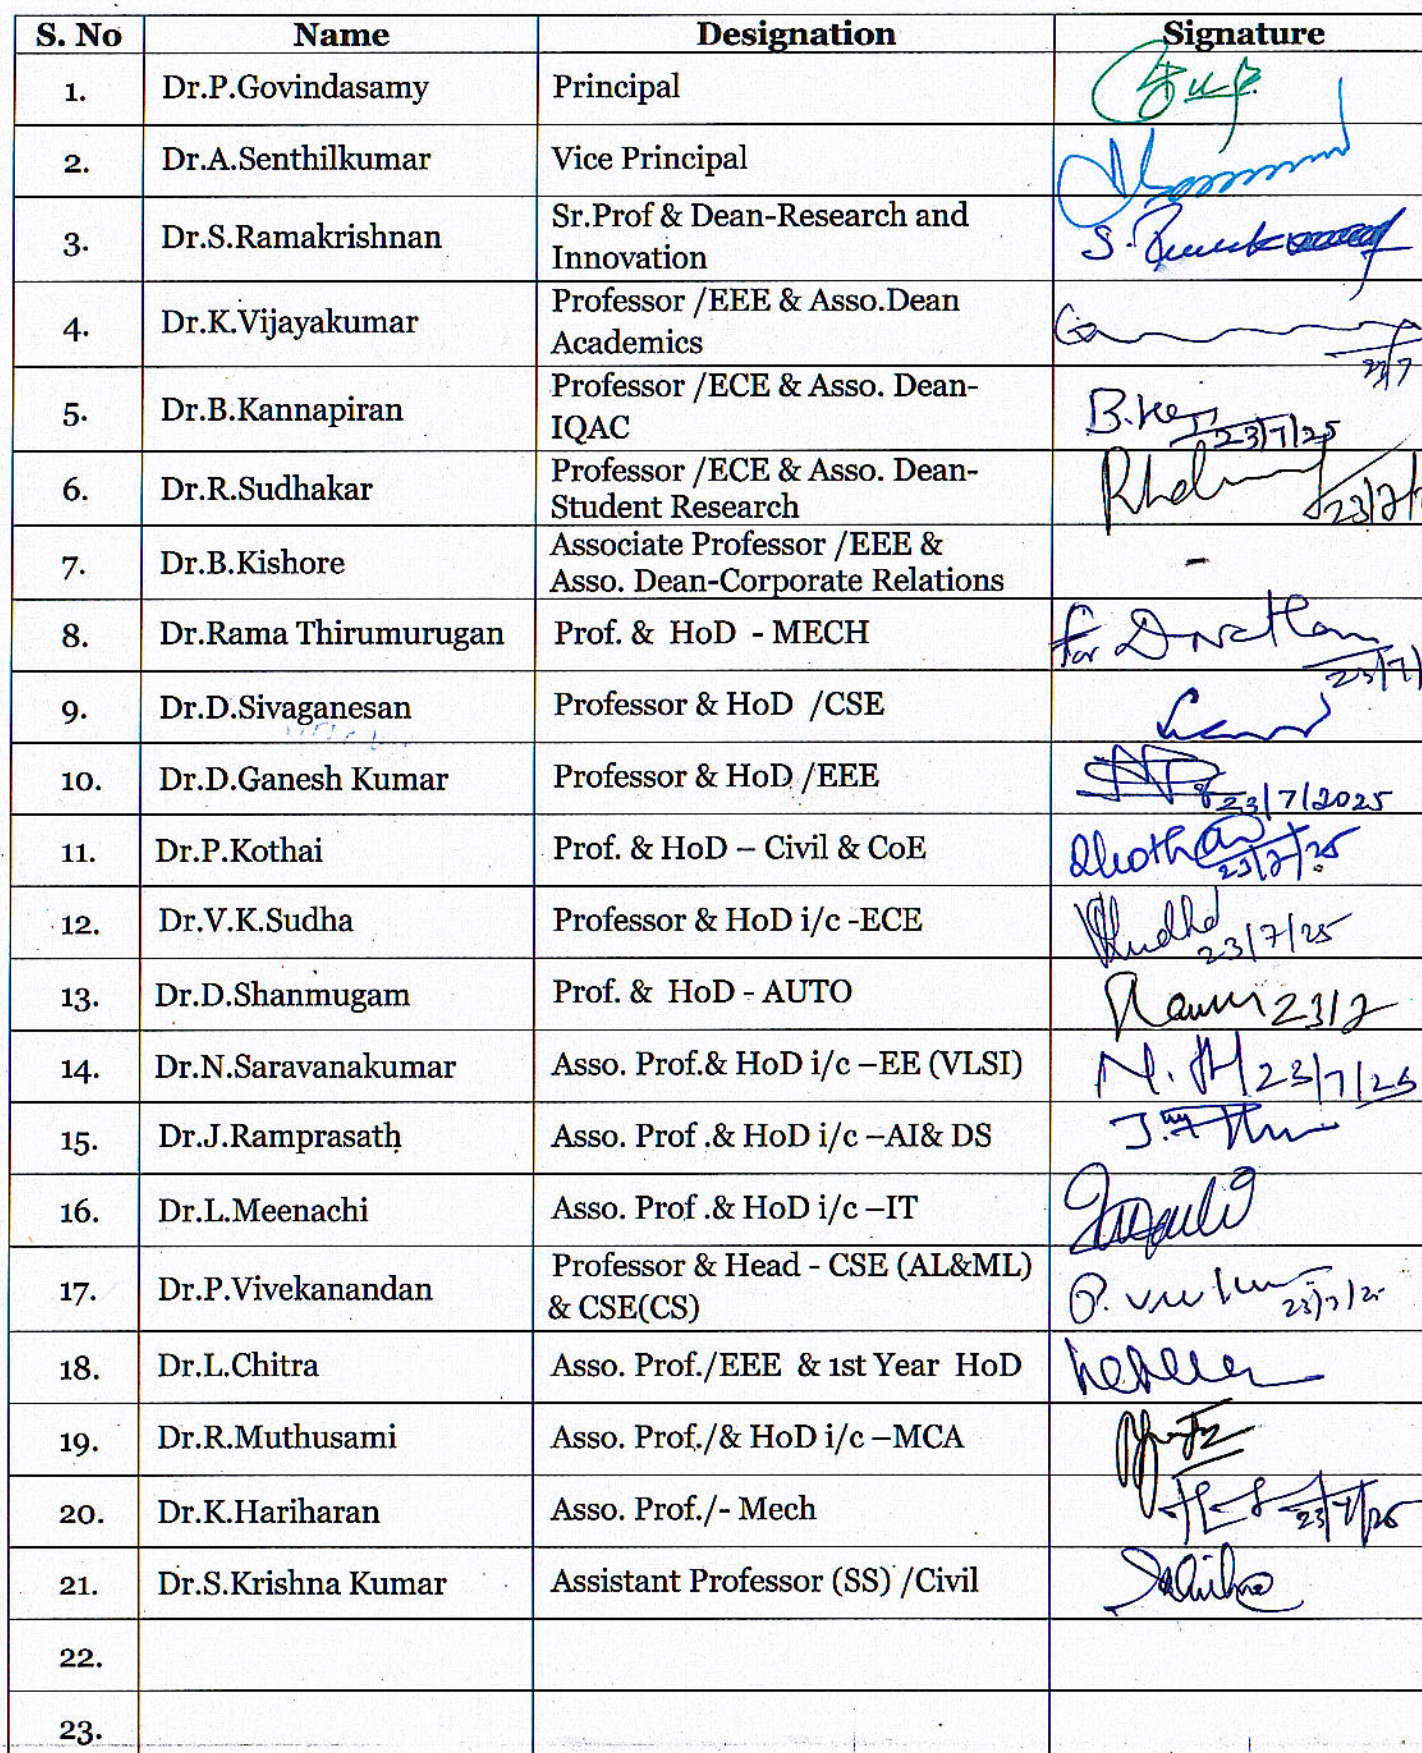 S. No Name Designation Signature
1. Dr.P.Govindasamy Principal
2. Dr.A.Senthilkumar Vice Principal
3. Dr.S.Ramakrishnan Sr.Prof & Dean-Research and
Innovation
4. Dr.K.Vijayakumar Professor /EEE & Asso.Dean
Academics
23/7
5. Dr.B.Kannapiran Professor /ECE & Asso. Dean-
IQAC
23/7/25
6. Dr.R.Sudhakar Professor /ECE & Asso. Dean-
Student Research
23/7/
7. Dr.B.Kishore Associate Professor /EEE &
Asso. Dean-Corporate Relations
-
8. Dr.Rama Thirumurugan Prof. & HoD - MECH for
23/7/
9. Dr.D.Sivaganesan Professor & HoD /CSE
10. Dr.D.Ganesh Kumar Professor & HoD /EEE
23/7/2025
11. Dr.P.Kothai Prof. & HoD – Civil & CoE
23/7/25
12. Dr.V.K.Sudha Professor & HoD i/c -ECE
23/7/25
13. Dr.D.Shanmugam Prof. & HoD - AUTO 23/7
14. Dr.N.Saravanakumar Asso. Prof.& HoD i/c –EE (VLSI) 23/7/25
15. Dr.J.Ramprasath Asso. Prof .& HoD i/c –AI& DS
16. Dr.L.Meenachi Asso. Prof .& HoD i/c –IT
17. Dr.P.Vivekanandan Professor & Head - CSE (AL&ML)
& CSE(CS)
23/7/25
18. Dr.L.Chitra Asso. Prof./EEE & 1st Year HoD
19. Dr.R.Muthusami Asso. Prof./& HoD i/c –MCA
20. Dr.K.Hariharan Asso. Prof./- Mech 23/7/25
21. Dr.S.Krishna Kumar Assistant Professor (SS) /Civil
22.
23.